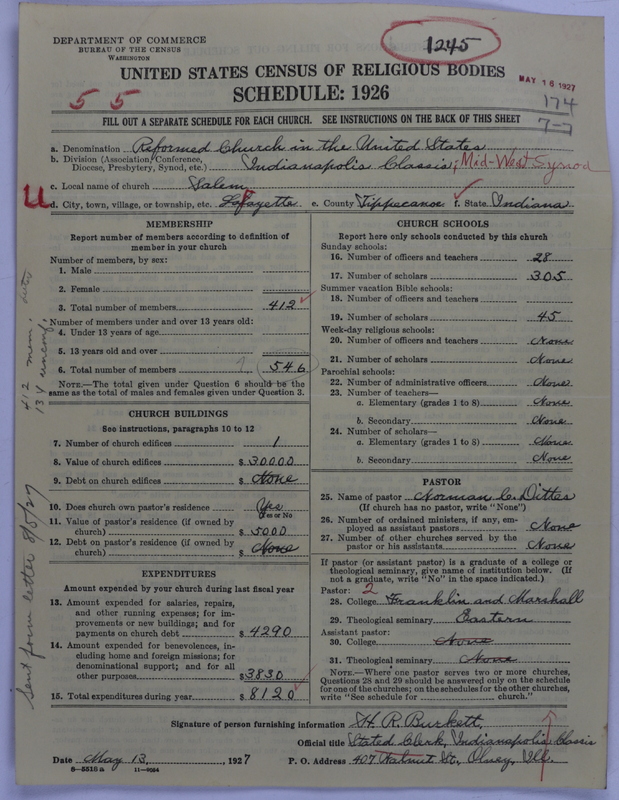 DEPARTMENT OF COMMERCE
BUREAU OF THE CENSUS
WASHINGTON
1245
UNITED STATES CENSUS OF RELIGIOUS BODIES
MAY 16 1927
SCHEDULE: 1926
5 5
174
7-7
FILL OUT A SEPARATE SCHEDULE FOR EACH CHURCH. SEE INSTRUCTIONS ON THE BACK OF THIS SHEET
a. Denomination Reformed Church in the United States
b. Division (Association, Conference, Diocese, Presbytery, Synod, etc.) Indianapolis Classis; Mid-West Synod
c. Local name of church Salem
U
d. City, town, village, or township, etc. Lafayette e. County Tippecanoe f. State Indiana
MEMBERSHIP
Report number of members according to definition of
member in your church
Number of members, by sex:
1. Male
2. Female
3. Total number of members 412
Number of members under and over 13 years old:
4. Under 13 years of age
5. 13 years old and over
6. Total number of members ? 546
NOTE.—The total given under Question 6 should be the
same as the total of males and females given under Question 3.
CHURCH BUILDINGS
See instructions, paragraphs 10 to 12
7. Number of church edifices 1
8. Value of church edifices $ 30000
9. Debt on church edifices $ None
10. Does church own pastor's residence Yes
Yes or No
11. Value of pastor's residence (if owned by
church) $ 5000
12. Debt on pastor's residence (if owned by
church) $ None
EXPENDITURES
Amount expended by your church during last fiscal year
13. Amount expended for salaries, repairs,
and other running expenses; for im-
provements or new buildings; and for
payments on church debt $ 4290
14. Amount expended for benevolences, in-
cluding home and foreign missions; for
denominational support; and for all
other purposes $ 3830
15. Total expenditures during year $ 8120
CHURCH SCHOOLS
Report here only schools conducted by this church
Sunday schools:
16. Number of officers and teachers 28
17. Number of scholars 305
Summer vacation Bible schools:
18. Number of officers and teachers
19. Number of scholars 45
Week-day religious schools:
20. Number of officers and teachers None
21. Number of scholars None
Parochial schools:
22. Number of administrative officers None
23. Number of teachers—
a. Elementary (grades 1 to 8) None
b. Secondary None
24. Number of scholars—
a. Elementary (grades 1 to 8) None
b. Secondary None
PASTOR
25. Name of pastor Norman C. Dittes
(If church has no pastor, write "None")
26. Number of ordained ministers, if any, em-
ployed as assistant pastors None
27. Number of other churches served by the
pastor or his assistants None
If pastor (or assistant pastor) is a graduate of a college or
theological seminary, give name of institution below. (If
not a graduate, write "No" in the space indicated.)
Pastor: 2
28. College Franklin and Marshall
29. Theological seminary Eastern
Assistant pastor:
30. College None
31. Theological seminary None
NOTE.—Where one pastor serves two or more churches,
Questions 28 and 29 should be answered only on the schedule
for one of the churches; on the schedules for the other churches,
write "See schedule for church."
Signature of person furnishing information H. R. Burkett
Official title Stated Clerk, Indianapolis Classis
Date May 13, 1927 P. O. Address 407 Walnut St., Olney, Ill.
8-5516 a 11-9024
412 mem.
Sent form letter 8/5/27